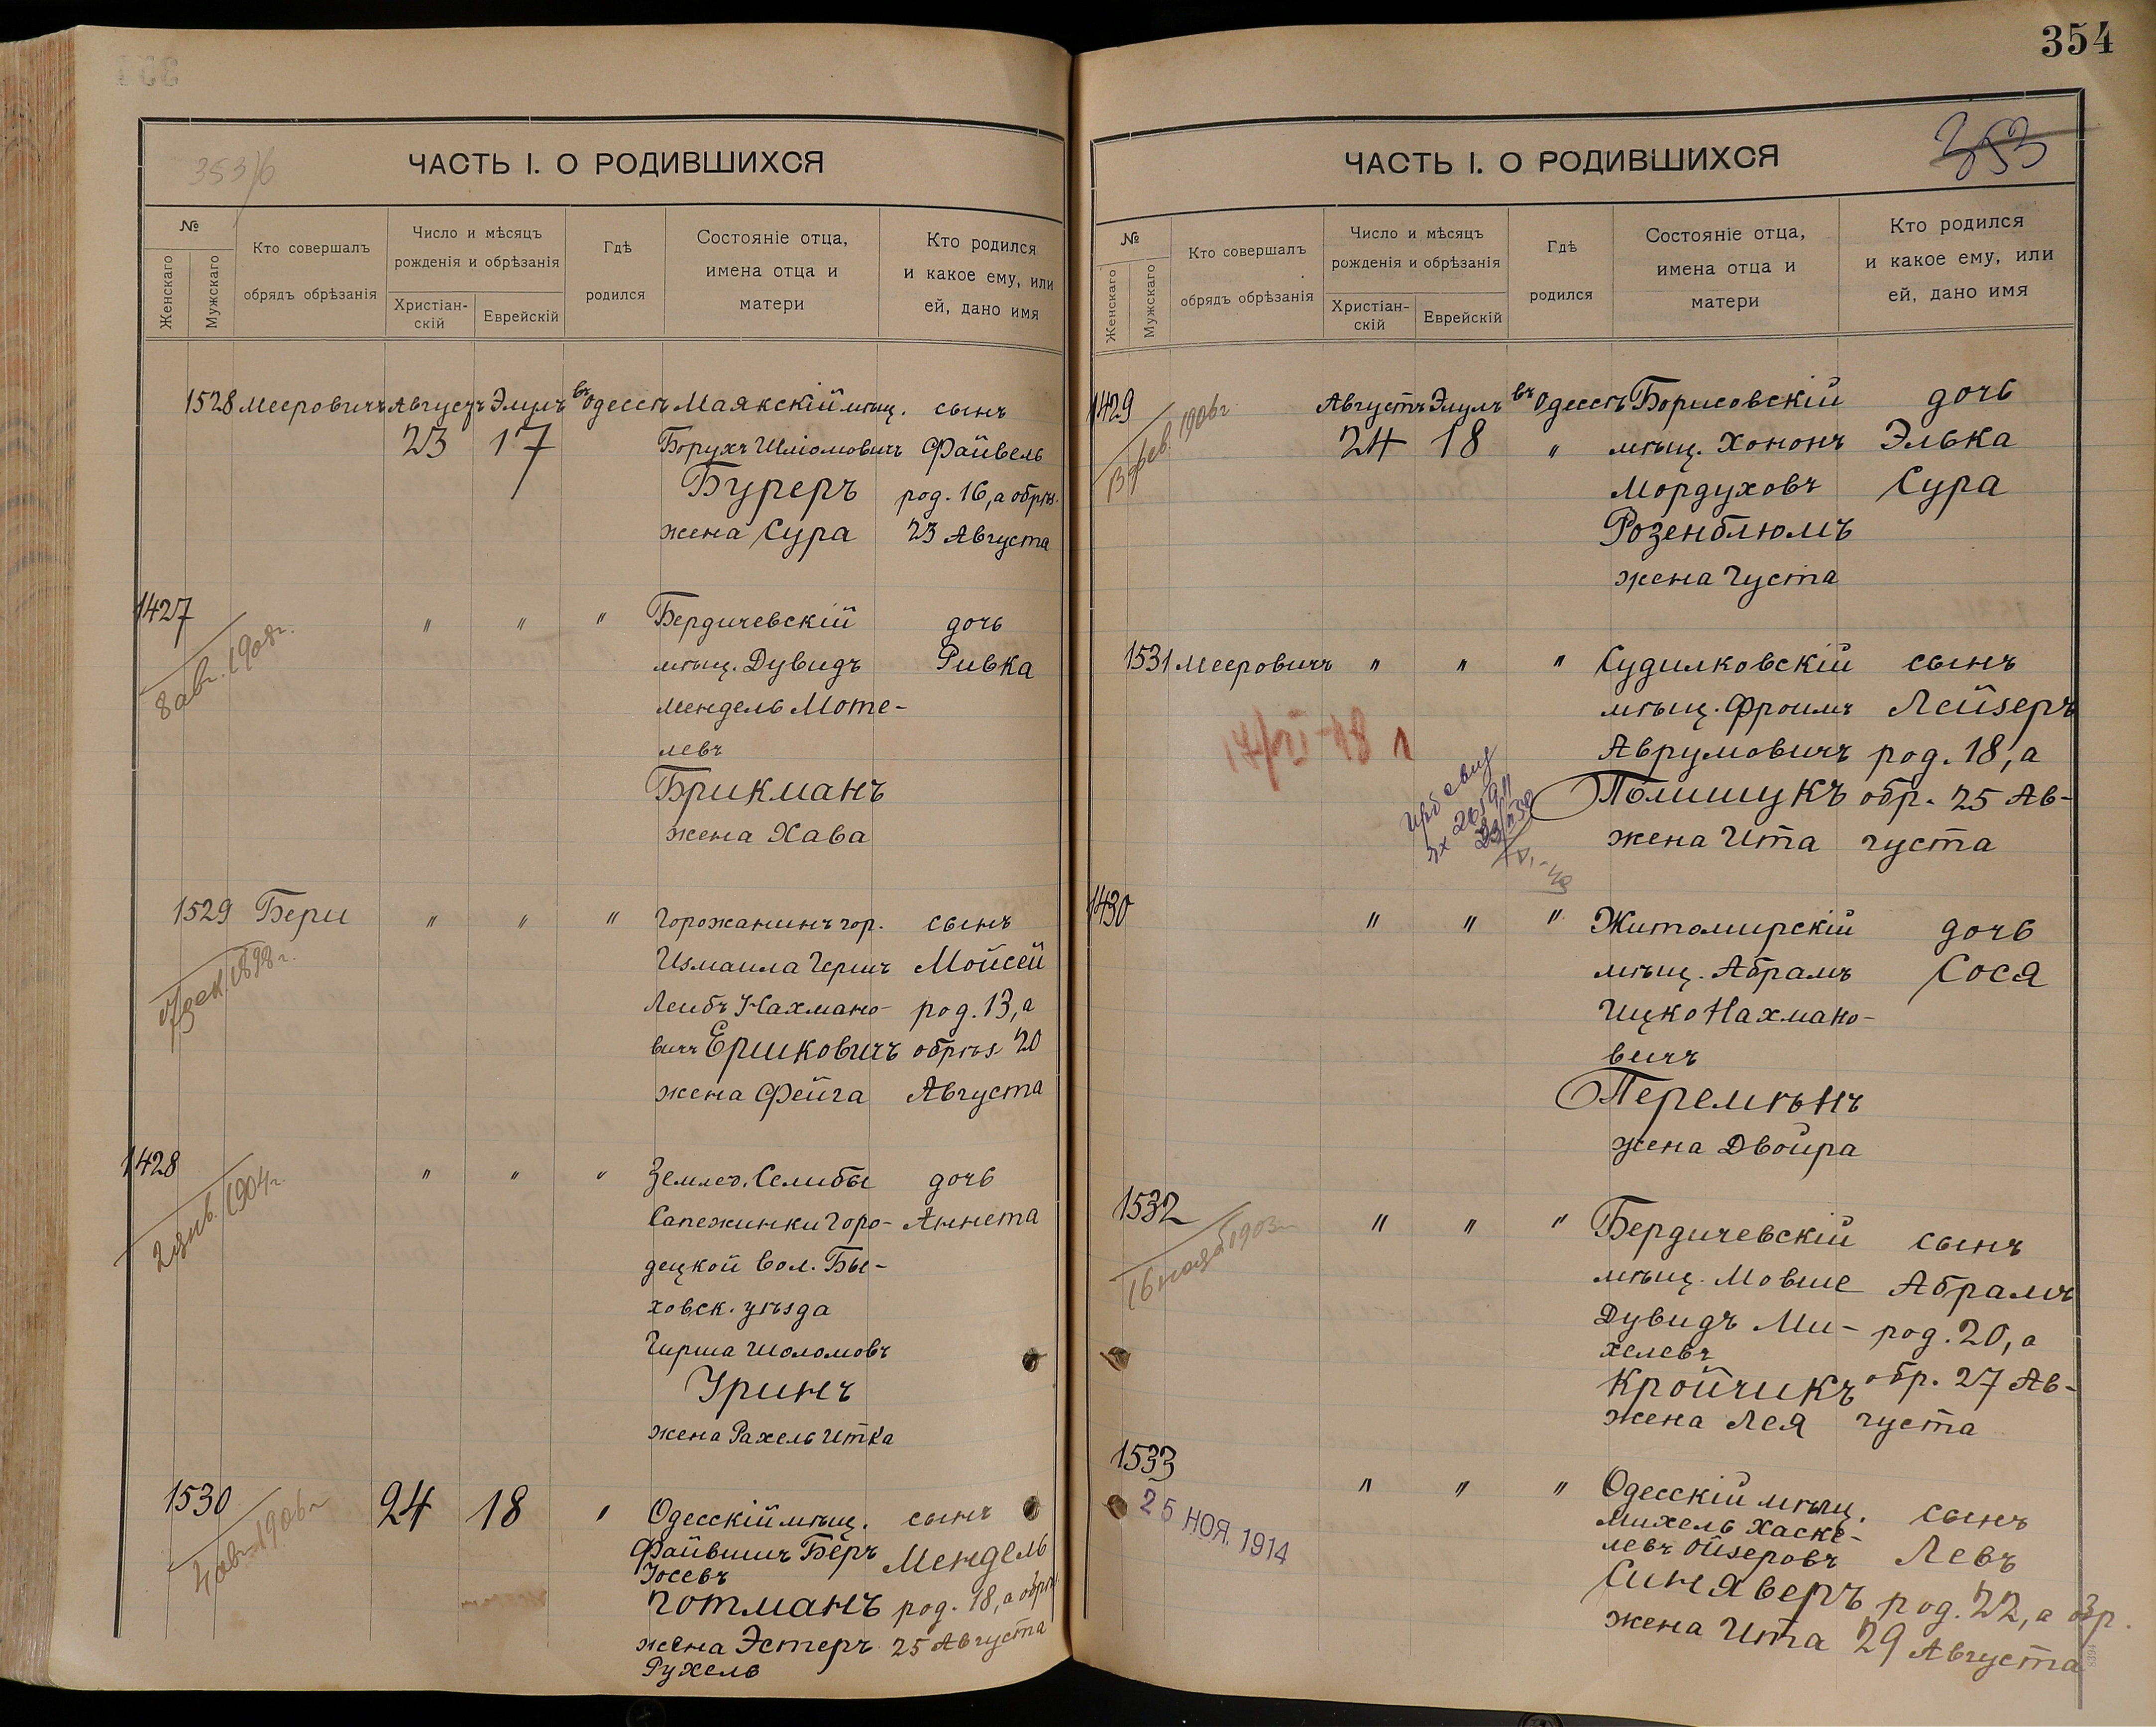 354
353/б
ЧАСТЬ I. О РОДИВШИХСЯ
№
Женскаго
Мужскаго
Кто совершалъ
обрядъ обрѣзанія
Число и мѣсяцъ
рожденія и обрѣзанія
Христіан-
скій
Еврейскій
Гдѣ
родился
Состояніе отца,
имена отца и
матери
Кто родился
и какое ему, или
ей, дано имя
1528 Мееровичъ Августъ Элулъ въ Одессѣ Маякскій мѣщ. сынъ
23 17 Борухъ Шліомовичъ Файвель
Буреръ род. 16, а обрѣз.
жена Сура 23 Августа
1427 " " " Бердичевскій дочь
8 авг. 1908г. мѣщ. Дувидъ Ривка
Мендель Моте-
левъ
Брикманъ
жена Хава
1529 Бери " " " Горожанинъ гор. сынъ
7 дек. 1898г. Измаила Гершъ Мойсей
Лейбъ Нахмано- род. 13, а
вичъ Ершковичъ обрѣз 20
жена Фейга Августа
1428 " " " Землед. Селибы дочь
2 янв. 1904г. Сапежинки Горо- Аннета
децкой вол. Бы-
ховск. уѣзда
Гирша Шоломовъ
Уринъ
жена Рахель Итка
1530 24 18 " Одесскій мѣщ. сынъ
4 авг. 1906г. Файвишъ Беръ Мендель
Іосевъ
Готманъ род. 18, а обрѣз.
жена Эстеръ 25 Августа
Рухель
353
ЧАСТЬ I. О РОДИВШИХСЯ
№
Женскаго
Мужскаго
Кто совершалъ
обрядъ обрѣзанія
Число и мѣсяцъ
рожденія и обрѣзанія
Христіан-
скій
Еврейскій
Гдѣ
родился
Состояніе отца,
имена отца и
матери
Кто родился
и какое ему, или
ей, дано имя
1429 Августъ Элулъ въ Одессѣ Борисовскій дочь
фев. 1906г. 24 18 " мѣщ. Хононъ Элька
Мордуховъ Сура
Розенблюмъ
жена Густа
1531 Мееровичъ " " " Судилковскій сынъ
мѣщ. Фроимъ Лейзеръ
Аврумовичъ род. 18, а
Полищукъ обр. 25 Ав-
жена Ита густа
1430 " " " Житомирскій дочь
мѣщ. Абрамъ Сося
Ицко Нахмано-
вичъ
Перемѣнъ
жена Двойра
1532 " " " Бердичевскій сынъ
16 нояб 1903г. мѣщ. Мовше Абрамъ
Дувидъ Ми- род. 20, а
хелевъ
Кройчикъ обр. 27 Ав-
жена Лея густа
1533 " " " Одесскій мѣщ. сынъ
25 НОЯ. 1914
Михель Хаске-
левъ Ойзеровъ Левъ
Синяверъ род. 22, а обр.
жена Ита 29 Августа